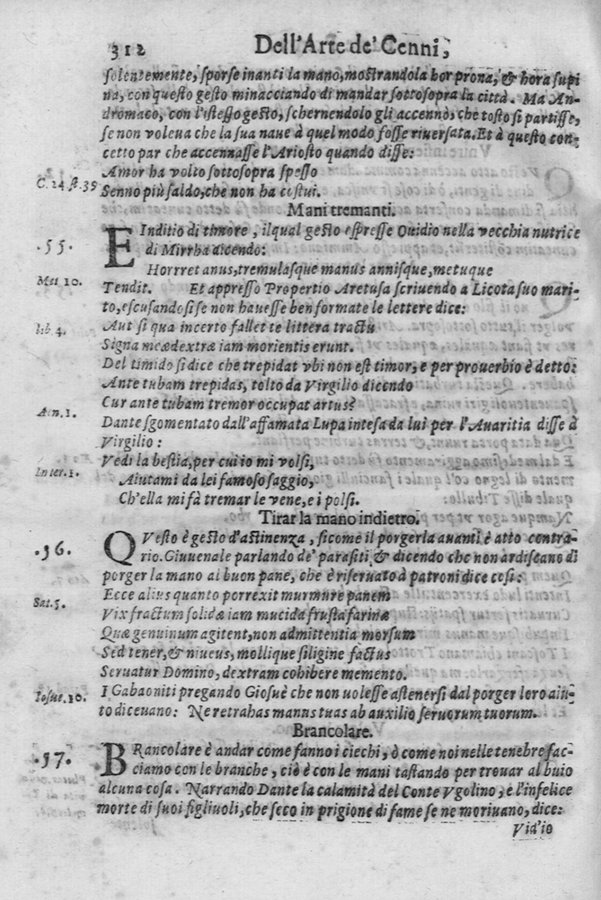 312 Dell'Arte de' Cenni,
solentemente, sporse inanti la mano, mostrandola hor prona, & hora supi
na, con questo gesto minacciando di mandar sottosopra la città. Ma An-
dromaco, con l'istesso gesto, schernendolo gli accennò, che tosto si partisse,
se non voleua che la sua naue à quel modo fosse riuersata. Et à questo con-
cetto par che accennasse l'Ariosto quando disse:
Amor ha volto sottosopra spesso
C. 24 st. 39
Senno più saldo, che non ha costui.
Mani tremanti.
.55.
E Inditio di timore, il qual gesto espresse Ouidio nella vecchia nutrice
di Mirrha dicendo:
Horrret anus, tremulasque manus annisque, metuque
Met 10.
Tendit. Et appresso Propertio Aretusa scriuendo a Licota suo mari-
to, escusandosi se non hauesse ben formate le lettere dice:
lib 4.
Aut si qua incerto fallet te littera tractu
Signa meæ dextræ iam morientis erunt.
Del timido si dice che trepidat vbi non est timor, e per prouerbio è detto:
Ante tubam trepidas, tolto da Virgilio dicendo
Aen. 1.
Cur ante tubam tremor occupat artus?
Dante sgomentato dall'affamata Lupa intesa da lui per l'Auaritia disse à
Virgilio:
Inter. 1.
Vedi la bestia, per cui io mi volsi,
Aiutami da lei famoso saggio,
Ch'ella mi fà tremar le vene, e i polsi.
Tirar la mano indietro.
.56.
QVesto è gesto d'astinenza, si come il porgerla auanti è atto contra-
rio. Giuuenale parlando de' parasiti, & dicendo che non ardiscano di
porger la mano al buon pane, che è riseruato à patroni dice cosi:
Ecce alius quanto porrexit murmure panem
Sat. 5.
Vix fractum solidæ iam mucida frusta farinæ
Quæ genuinum agitent, non admittentia morsum
Sed tener, & niueus, mollique siligine factus
Seruatur Domino, dextram cohibere memento.
Iosue. 10.
I Gabaoniti pregando Giosuè che non uolesse astenersi dal porger loro aiu-
to diceuano: Ne retrahas manus tuas ab auxilio seruorum tuorum.
Brancolare.
.57.
BRancolare è andar come fanno i ciechi, ò come noi nelle tenebre fac-
ciamo con le branche, ciò è con le mani tastando per trouar al buio
alcuna cosa. Narrando Dante la calamità del Conte Vgolino, e l'infelice
morte di suoi figliuoli, che seco in prigione di fame se ne moriuano, dice:
Vid'io